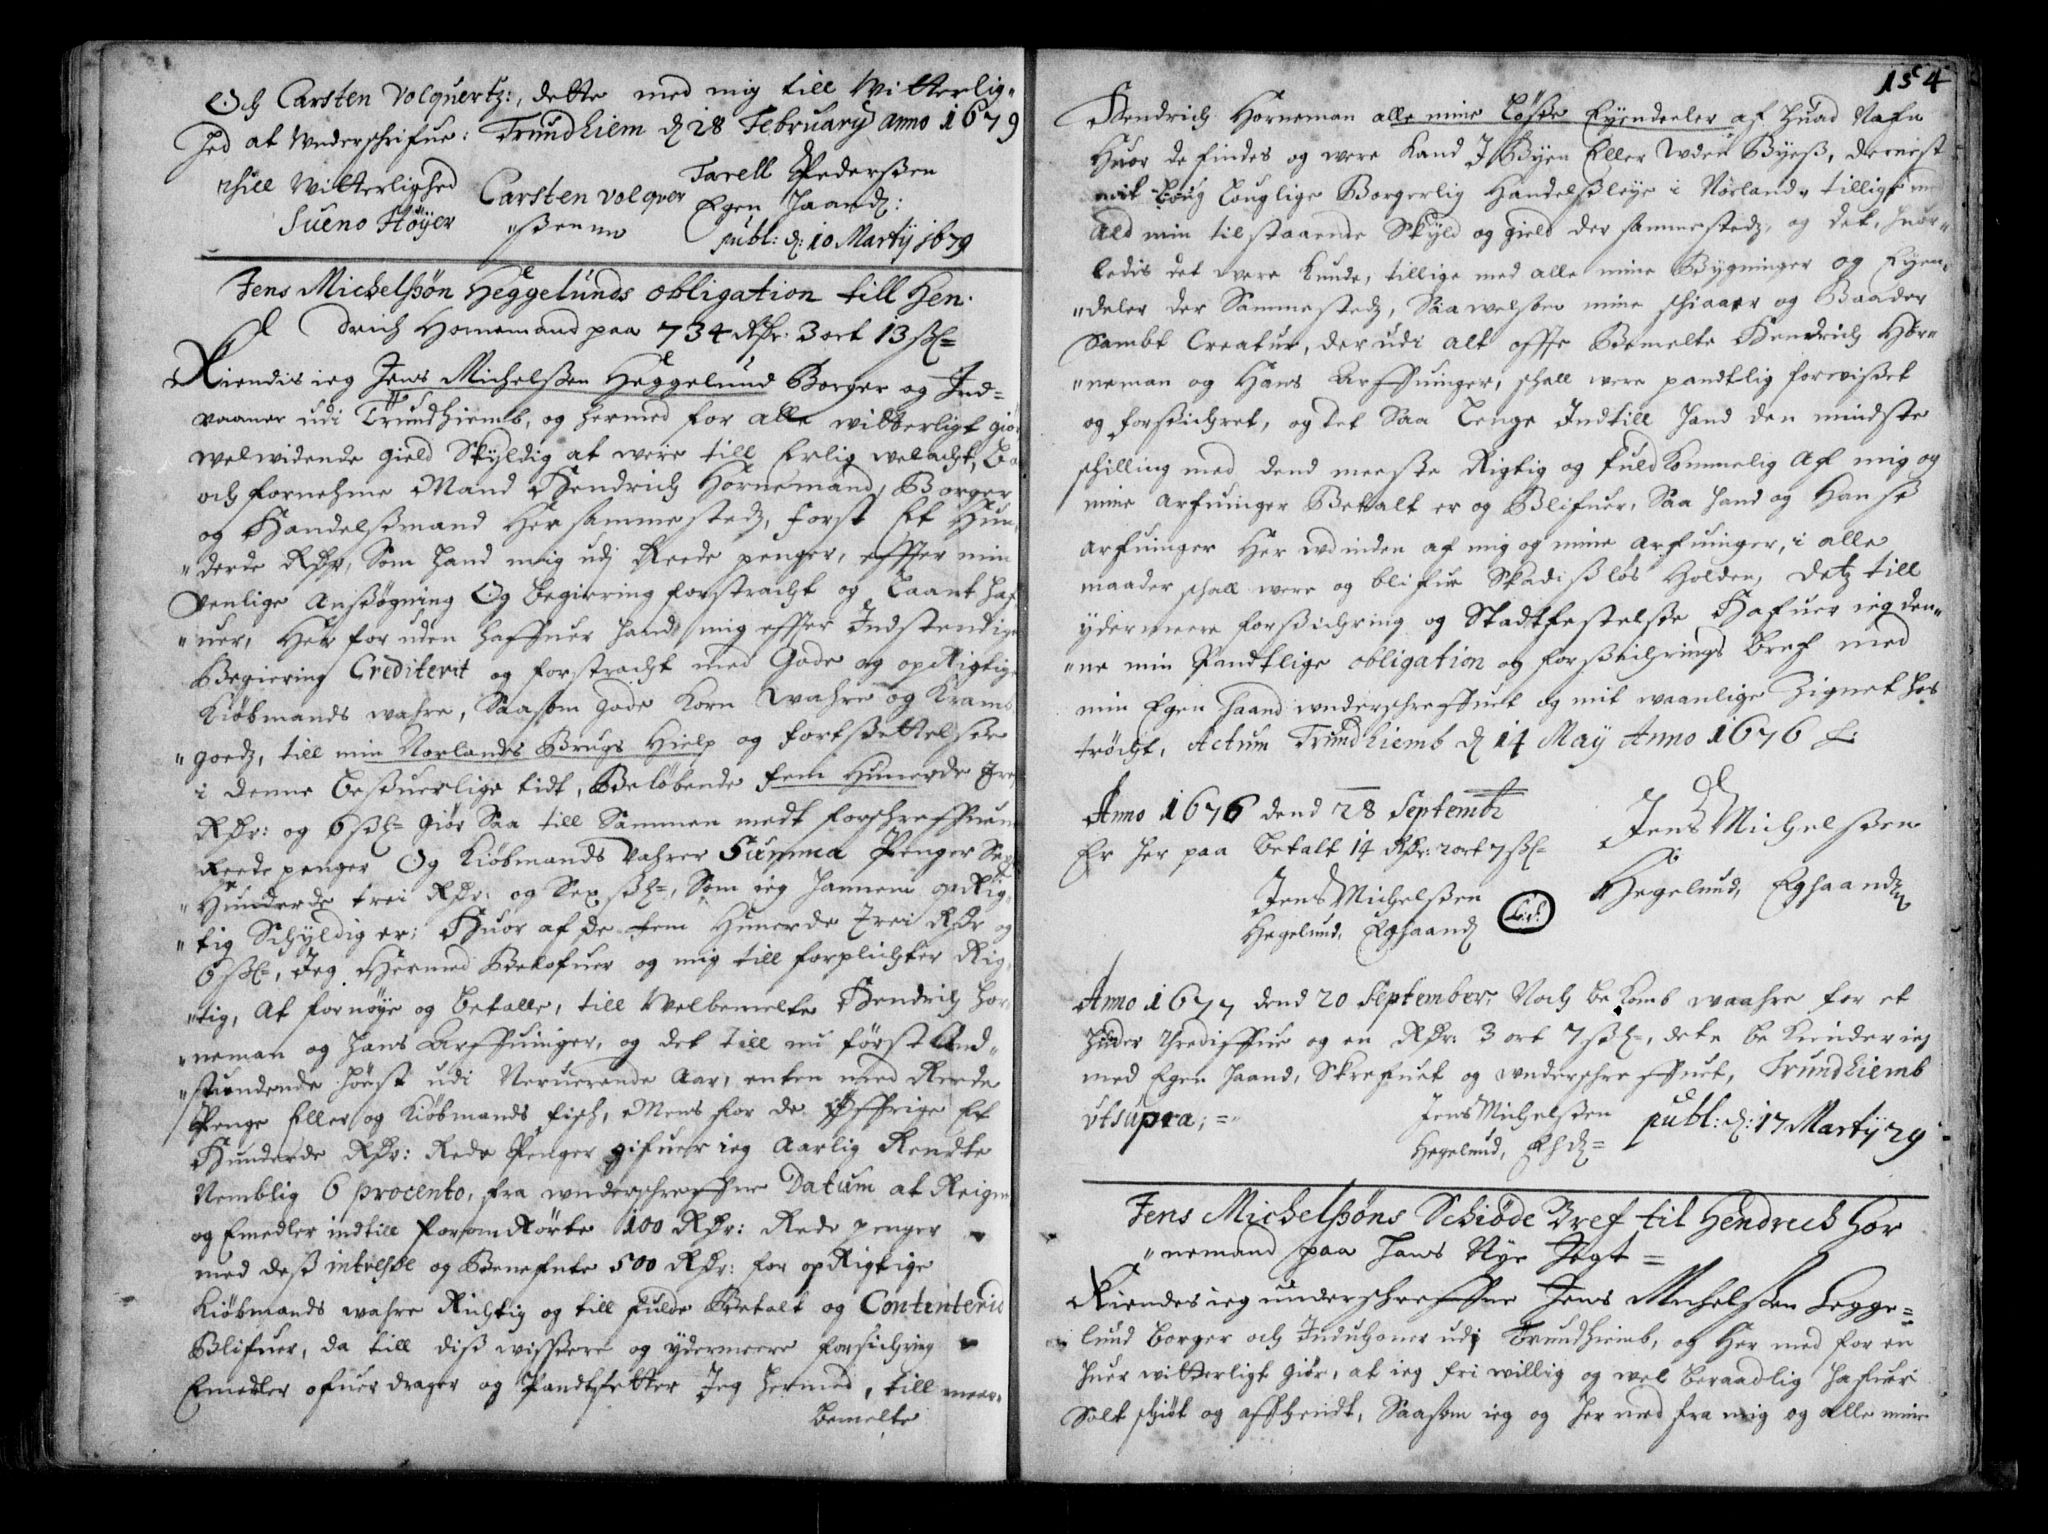 Och Carsten Volquertz:, dette med mig till Witterlig„
hed at Underschrifue: Trundhiem d 28 February anno 1679
Till Witterlighed Carsten Volqver Tarell Pedersøen
Sueno Høyer „ßenn Egen Haand:
publ: d: 10 Martij 1679
Jens Michelßøn Heggelunds obligation till Hen.
drich Hornemand paa 734 Rdr: 3 ort 13 ß=
Kiendis ieg Jens Michelßen Heggelund Borger og Ind=
vaaner udi Trundhiemb, og hermed for alle witterligt giør
welwidende gield Skyldig at were till Erlig welacht,
och fornehme Mand Hendrich Hornemand, Borger
og Handelßmand Hersammestedz, forst Et Hun
„derde Rdr, Som hand mig udj Reede penger, effter min
venlige Ansøgning Og begiering forstracht og Laant haf
„uer, Her foruden haffuer hand mig effter Indstendige
Begiering Creditert og forstracht med Gode og opRigtige
Kiøbmands wahre, Saasom Gode Korn wahre og Krams
„goedz, till min Norlands Brugs Hielp og fortsettelse
i denne besuerlige tidt, Beløbende fem Hunerde Trei
Rdr: og 6 ß= Giør Saa till Sammen medt forschreffuene
Reede penger Og Kiøbmands Vahrer Summa Penger Sex
„Hunderde trei Rdr: og Sex ß=, Som ieg hannem opRig„
„tig Schyldig er; Huor af de fem Hunerde Trei Rdr og
6 ß=, Jeg Hermed Belofuer og mig till forplichter Rig„
„tig, At fornøye og betalle, till Welbemelte Hendrich Hor„
„neman og hans Arffuinger, og det till nu først And„
„stundende høest udi Neruerende Aar, enten med Reede
Penge Eller og Kiøbmands fisch, Mens for de øffrige Et
Hunderde Rdr: Rede Penger gifuer ieg Aarlig Rendte
Nemblig 6 procento, fra underschreffne Datum at Reigne
og Emedler indtill forom Rørte 100 Rdr: Rede penger
med deß intresse og Benefnte 500 Rdr: for opRigtige
Kiøbmands wahre Richtig og till fulde Betalt og Contenterid
Blifuer, da till diß wissere og ydermeere forsichring
Emedler ofuer drager og Pandtsetter Jeg hermed, till meer„
bemelte
154
Hendrich Horneman alle mine Løse Eyendeeler af huad Nafn
Huor de findes og were Kand J Byen Eller uden Byeß, dernest
mit Louglige Borgerlig Handelßleye i Nørland, tillige med
Ald min tilstaaende Skyld og gield der sammestedz, og det, huor„
ledis det were Kunde, tillige med alle mine Bygninger og Eyen„
„deler der Sammestedz, Saawelsom mine schiaaer og Baader
Sambt Creatur, der udi alt ofte Bemelte Hendrich Hor„
„neman og Hans Arffuinger, schall were pandtlig forvisset
og forsichret, og det Saa Lenge Indtill hand den mindste
schilling med dend meeste Rigtig og fuldKommelig Af mig og
mine Arfuinger Betalt er og Blifuer, Saa hand og Hanß
Arfuinger Her udinden af mig og mine Arfuinger, i alle
maader schall were og blifue Skadißløs Holden, Detz till
ydermeere forsichring og Stadtfestelße Hafuer ieg den„
„ne min Pandtlige obligation og forsichrings bref med
min Egen haand underschreffuet og mit waanlige Zignet hos
tröcht, Actum Trundhiemb d 14 May Anno 1676
Anno 1676 dend 28 Septembr
Er her paa betalt 14 Rdr: 2 ort 7 ß=
Jens Michelßen
Hegelund, Eghaand
Jens Michelßen
Hegelund, Eghaand
L.S.
Anno 1677 dend 20 September; Noch beKomb waahre for et
huder thrediffue og en Rdr: 3 ort 7 ß=, dete beKiender ieg
med Egen haand, Skrefuet og underschreffuet, Trundhiemb
Vtsupra; = Jens Michelßen
Hegelund, Ehd= publ: d: 17 Martij 79
Jens Michelßøns Schiøde Bref til Hendrech Hor
„nemand paa hans Nye Jegt =
Kiendes ieg underschreffne Jens Michelßen Hegge=
lund borger och Induhaner udj Trundhiemb, og Her med for en
huer witterligt Giør, at ieg fri willig og wel beraadlig hafuer
Solt schiøt og affhendt, Saasom ieg og hermed fra mig og alle mine